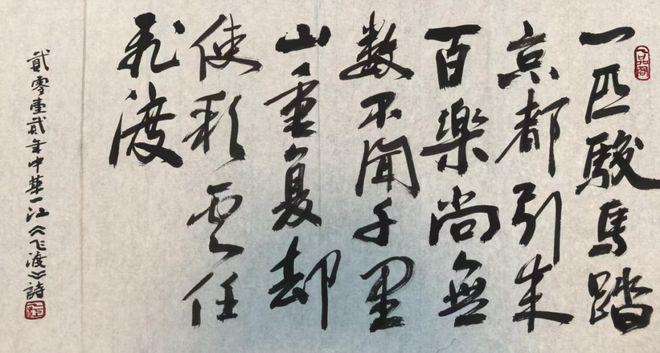 一匹駿馬踏
京都引来
百樂尚無
数不聞千里
山重复却
使彩雲任
飛渡
貳零壹貳年中華一江《飞渡》詩